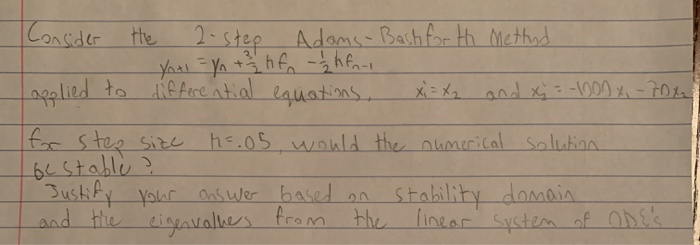 Consider the 2-step Adams-Bashforth Method
yₙ₊₁ = yₙ + 3/2 h fₙ - 1/2 h fₙ₋₁
applied to differential equations, x₁' = x₂ and x₂' = -1000x₁ - 70x₂
for step size h=.05, would the numerical solution
be stable?
Justify your answer based on stability domain
and the eigenvalues from the linear system of ODE's